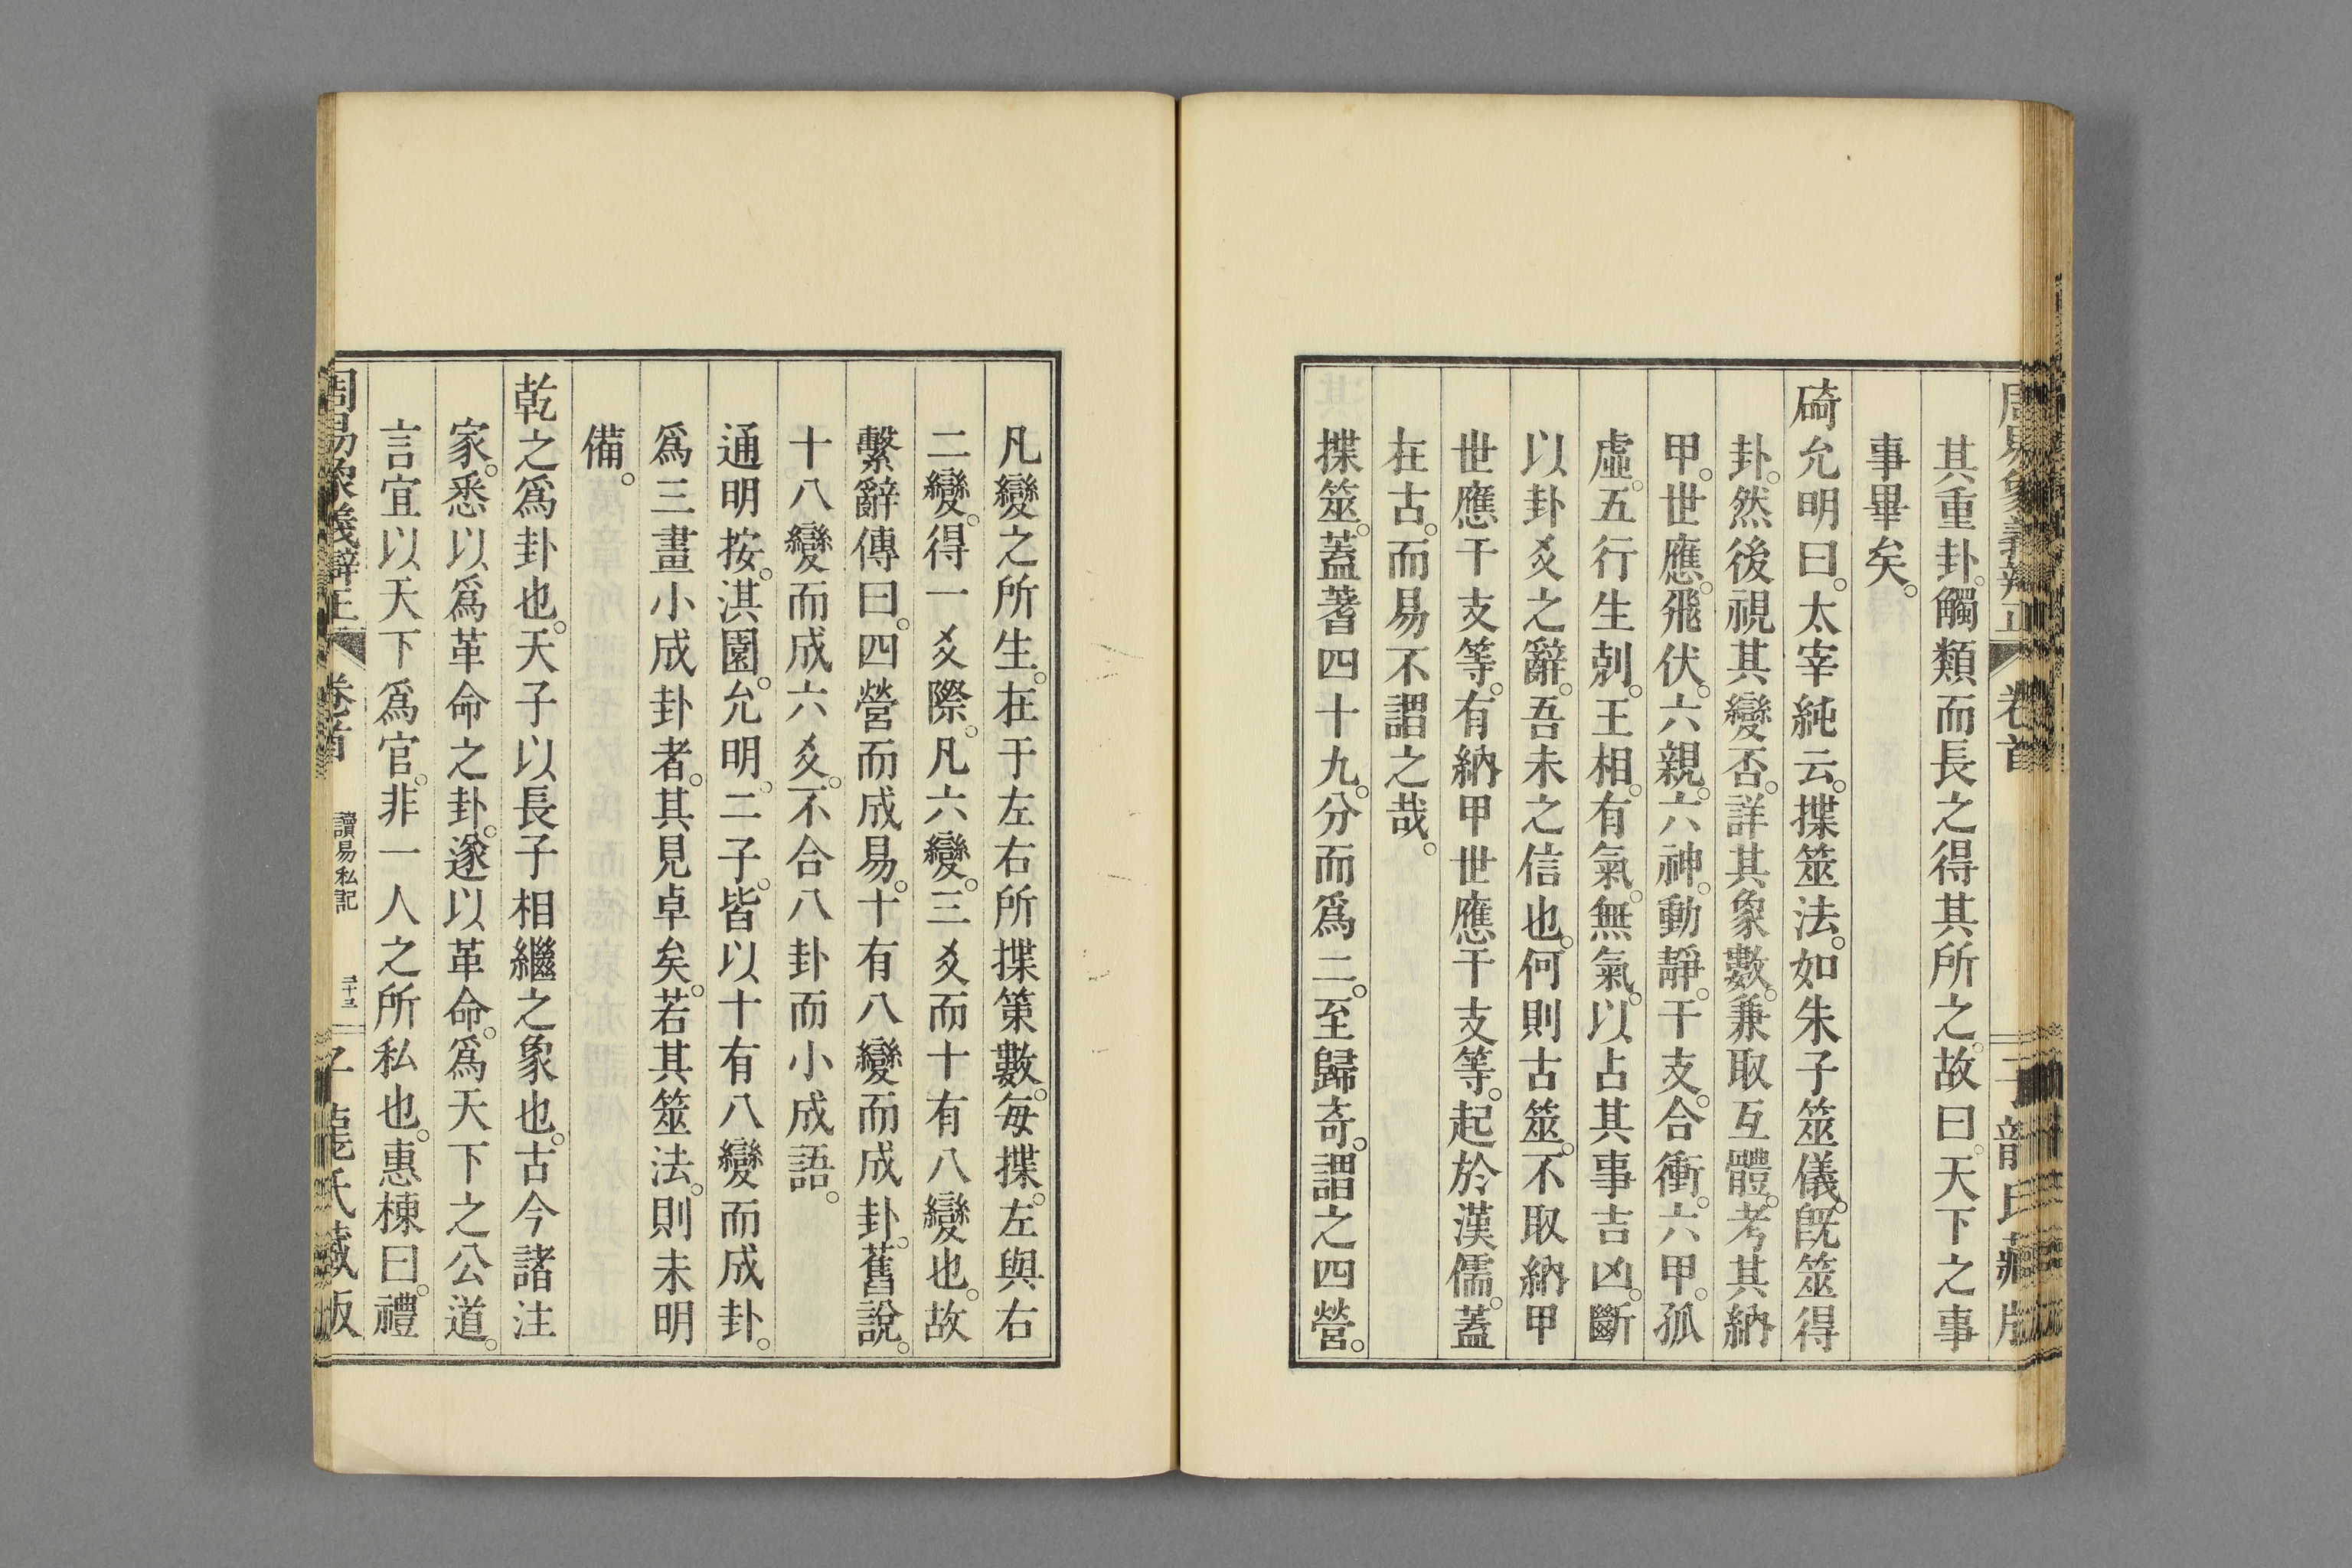 周易象義辨正 卷首
其重卦。觸類而長之得其所之。故曰。天下之事
事畢矣。
碕允明曰。太宰純云。揲筮法。如朱子筮儀。既筮得
卦。然後視其變否。詳其象數。兼取互體。考其納
甲。世應。飛伏。六親。六神。動靜。干支。合衝。六甲。孤
虛。五行生剋。王相。有氣。無氣。以占其事吉凶。斷
以卦爻之辭。吾未之信也。何則古筮。不取納甲
世應干支等。有納甲世應干支等。起於漢儒。蓋
在古。而易不謂之哉。
揲筮。蓋蓍四十九。分而爲二。至歸奇。謂之四營。
凡變之所生。在于左右所揲策數。每揲。左與右
二變。得一爻際。凡六變。三爻而十有八變也。故
繫辭傳曰。四營而成易。十有八變而成卦。舊說。
十八變而成六爻。不合八卦而小成語。
通明按。淇園。允明。二子。皆以十有八變而成卦。
爲三畫小成卦者。其見卓矣。若其筮法。則未明
備。
乾之爲卦也。天子以長子相繼之象也。古今諸注
家。悉以爲革命之卦。遂以革命。爲天下之公道。
言宜以天下爲官。非一人之所私也。惠棟曰。禮
周易象義辯正 卷首 讀易私記 二十三 子龍氏藏版